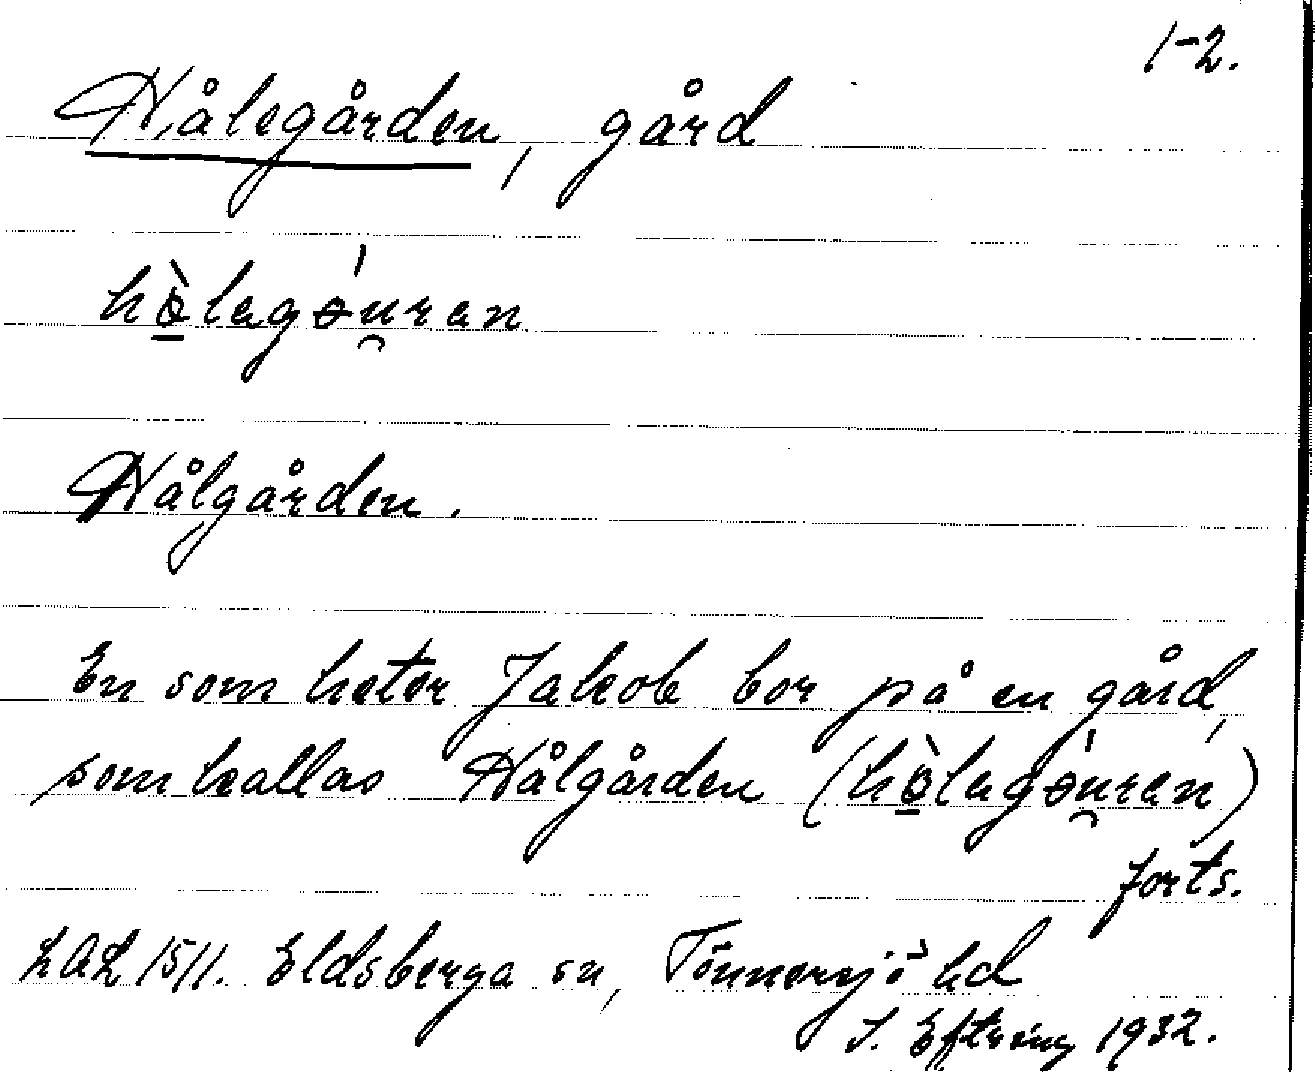 1-2.
Hålegården, gård
hò̠lagə́u̯ran
Hålgården.
En som heter Jakob bor på en gård,
som kallas Hålgården (hò̠lagə́u̯ran)
forts.
LAL 1511. Eldsberga sn, Tönnersjö hd
1932.